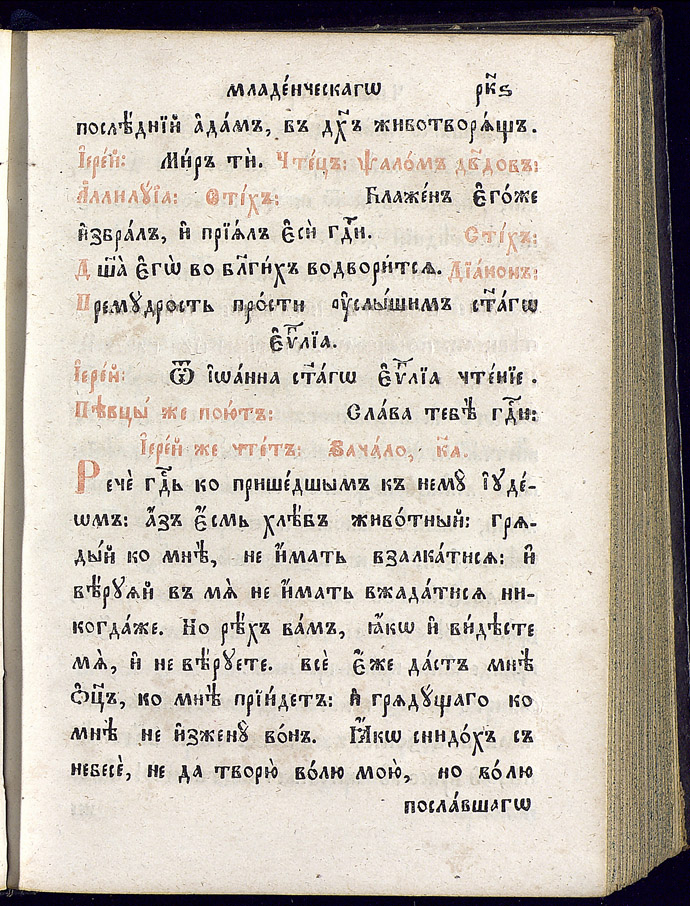 младе́нческагѡ рк҃ѕ
послѣ́днїй а҆да́мъ, въ дх҃ъ животворѧ́щъ.
І҆ере́й: Ми́ръ тѝ. Чте́цъ: ѱало́мъ дв҃дов:
А҆ллилꙋ́їа: Сті́хъ: Блаже́нъ є҆го́же
и҆збра́лъ, и҆ прїѧ́лъ є҆сѝ гдⷭ҇и. Сті́хъ:
Дш҃а̀ є҆гѡ̀ во бл҃ги́хъ водвори́тсѧ. Дїа́кон:
Премꙋ́дрость про́сти ᲂу҆слы́шимъ ст҃а́гѡ
є҆ѵⷢ҇лїа.
І҆ере́й: Ѿ і҆ѡа́нна ст҃а́гѡ є҆ѵⷢ҇лїа чте́нїе .
Пѣвцы́ же пою́тъ: Сла́ва тебѣ̀ гдⷭ҇и:
І҆ере́й же чте́тъ: Зача́ло, к҃а.
Речѐ гдⷭ҇ь ко прише́дшымъ къ немꙋ̀ і҆ꙋде́-
ѡмъ: а҆́зъ є҆́смь хлѣ́бъ живо́тный: грѧ-
ды́й ко мнѣ̀, не и҆́мать взалка́тисѧ: и҆
вѣ́рꙋѧй въ мѧ̀ не и҆́мать вжада́тисѧ ни-
когда́же. Но рѣ́хъ ва́мъ, ꙗ҆́кѡ и҆ ви́дѣсте
мѧ̀, и҆ не вѣ́рꙋете. всѐ є҆́же да́стъ мнѣ̀
ѻ҆ц҃ъ, ко мнѣ̀ прїи́детъ: и҆ грѧдꙋ́щаго ко
мнѣ̀ не и҆зженꙋ̀ во́нъ. Ꙗ҆́кѡ снидо́хъ съ
небесѐ, не да творю̀ во́лю мою̀, но во́лю
посла́вшагѡ